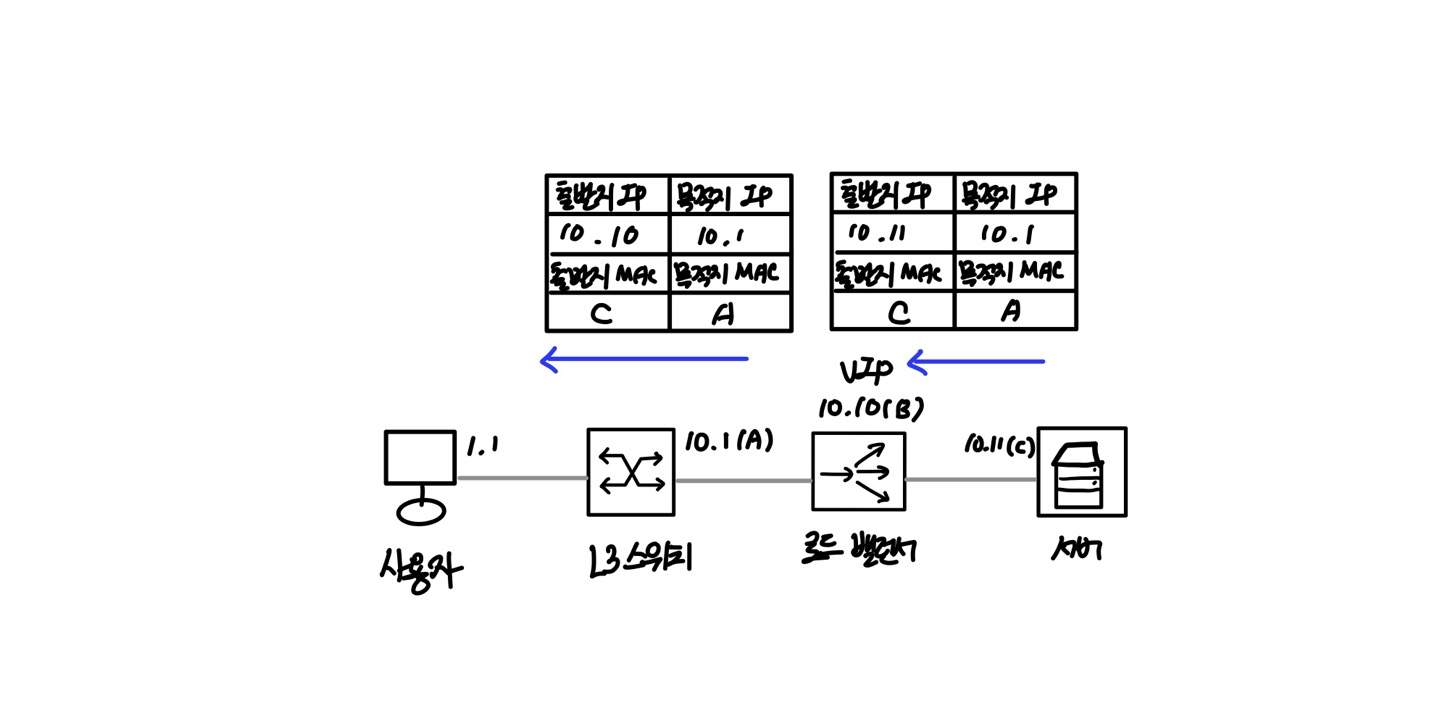 출발지 IP 목적지 IP
10.10 10.1
출발지 MAC 목적지 MAC
C A
출발지 IP 목적지 IP
10.11 10.1
출발지 MAC 목적지 MAC
C A
VIP
10.10(B)
1.1
10.1(A)
10.11(C)
사용자
L3 스위치
로드 밸런서
서버